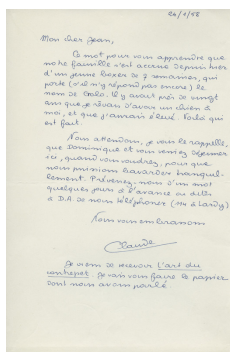 24/1/58
Mon cher Jean,
Ce mot pour vous apprendre que
notre famille s'est accrue depuis hier
d'un jeune boxer de 7 semaines, qui
porte (s'il n'y répond pas encore) le
nom de Carlo. Il y avait près de vingt
ans que je rêvais d'avoir un chien à
moi, et que j'aurais élevé. Voilà qui
est fait.
Nous attendons, je vous le rappelle,
que Dominique et vous veniez déjeuner
ici, quand vous voudrez, pour que
nous puissions bavarder tranquil-
lement. Prévenez-nous d'un mot
quelques jours à l'avance ou dites
à D.A. de nous téléphoner (114 à Lardy)
Nous vous embrassons
Claude
Je viens de recevoir l'art du
contrepet. Je vais vous faire le papier
dont nous avons parlé.